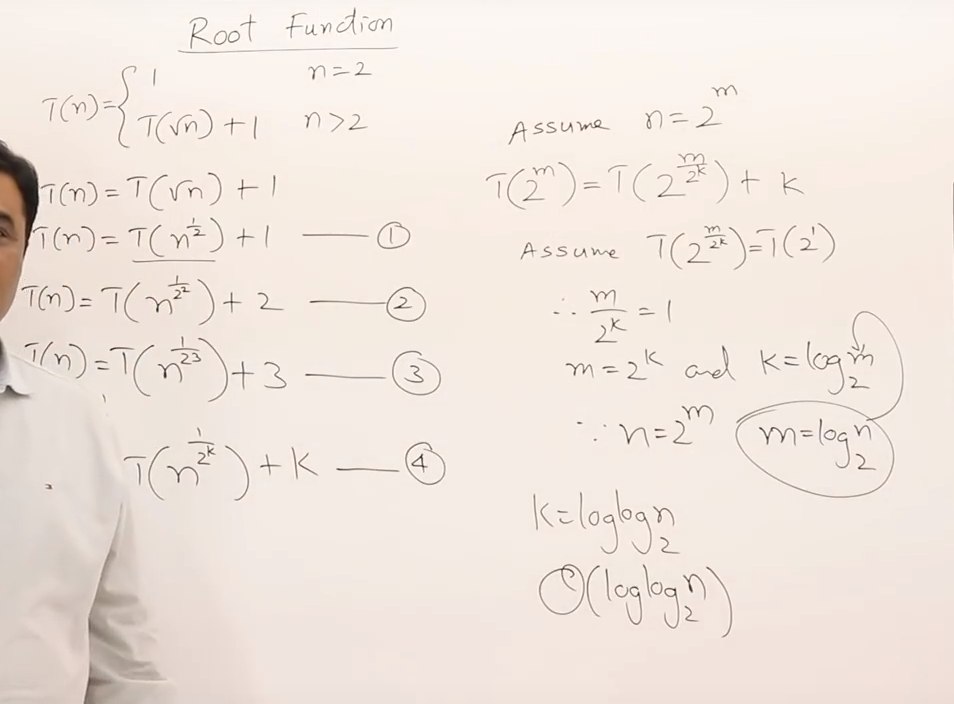 Root Function
T(n)={1 n=2
T(√n)+1 n>2
T(n)=T(√n)+1
T(n)=T(n^(1/2))+1 —— ①
T(n)=T(n^(1/2²))+2 —— ②
T(n)=T(n^(1/2³))+3 —— ③
T(n^(1/2^k))+k —— ④
Assume n=2^m
T(2^m)=T(2^(m/2^k))+k
Assume T(2^(m/2^k))=T(2¹)
∴ m/2^k=1
m=2^k and k=log₂m
∵ n=2^m m=log₂n
k=loglog₂n
O(loglog₂n)